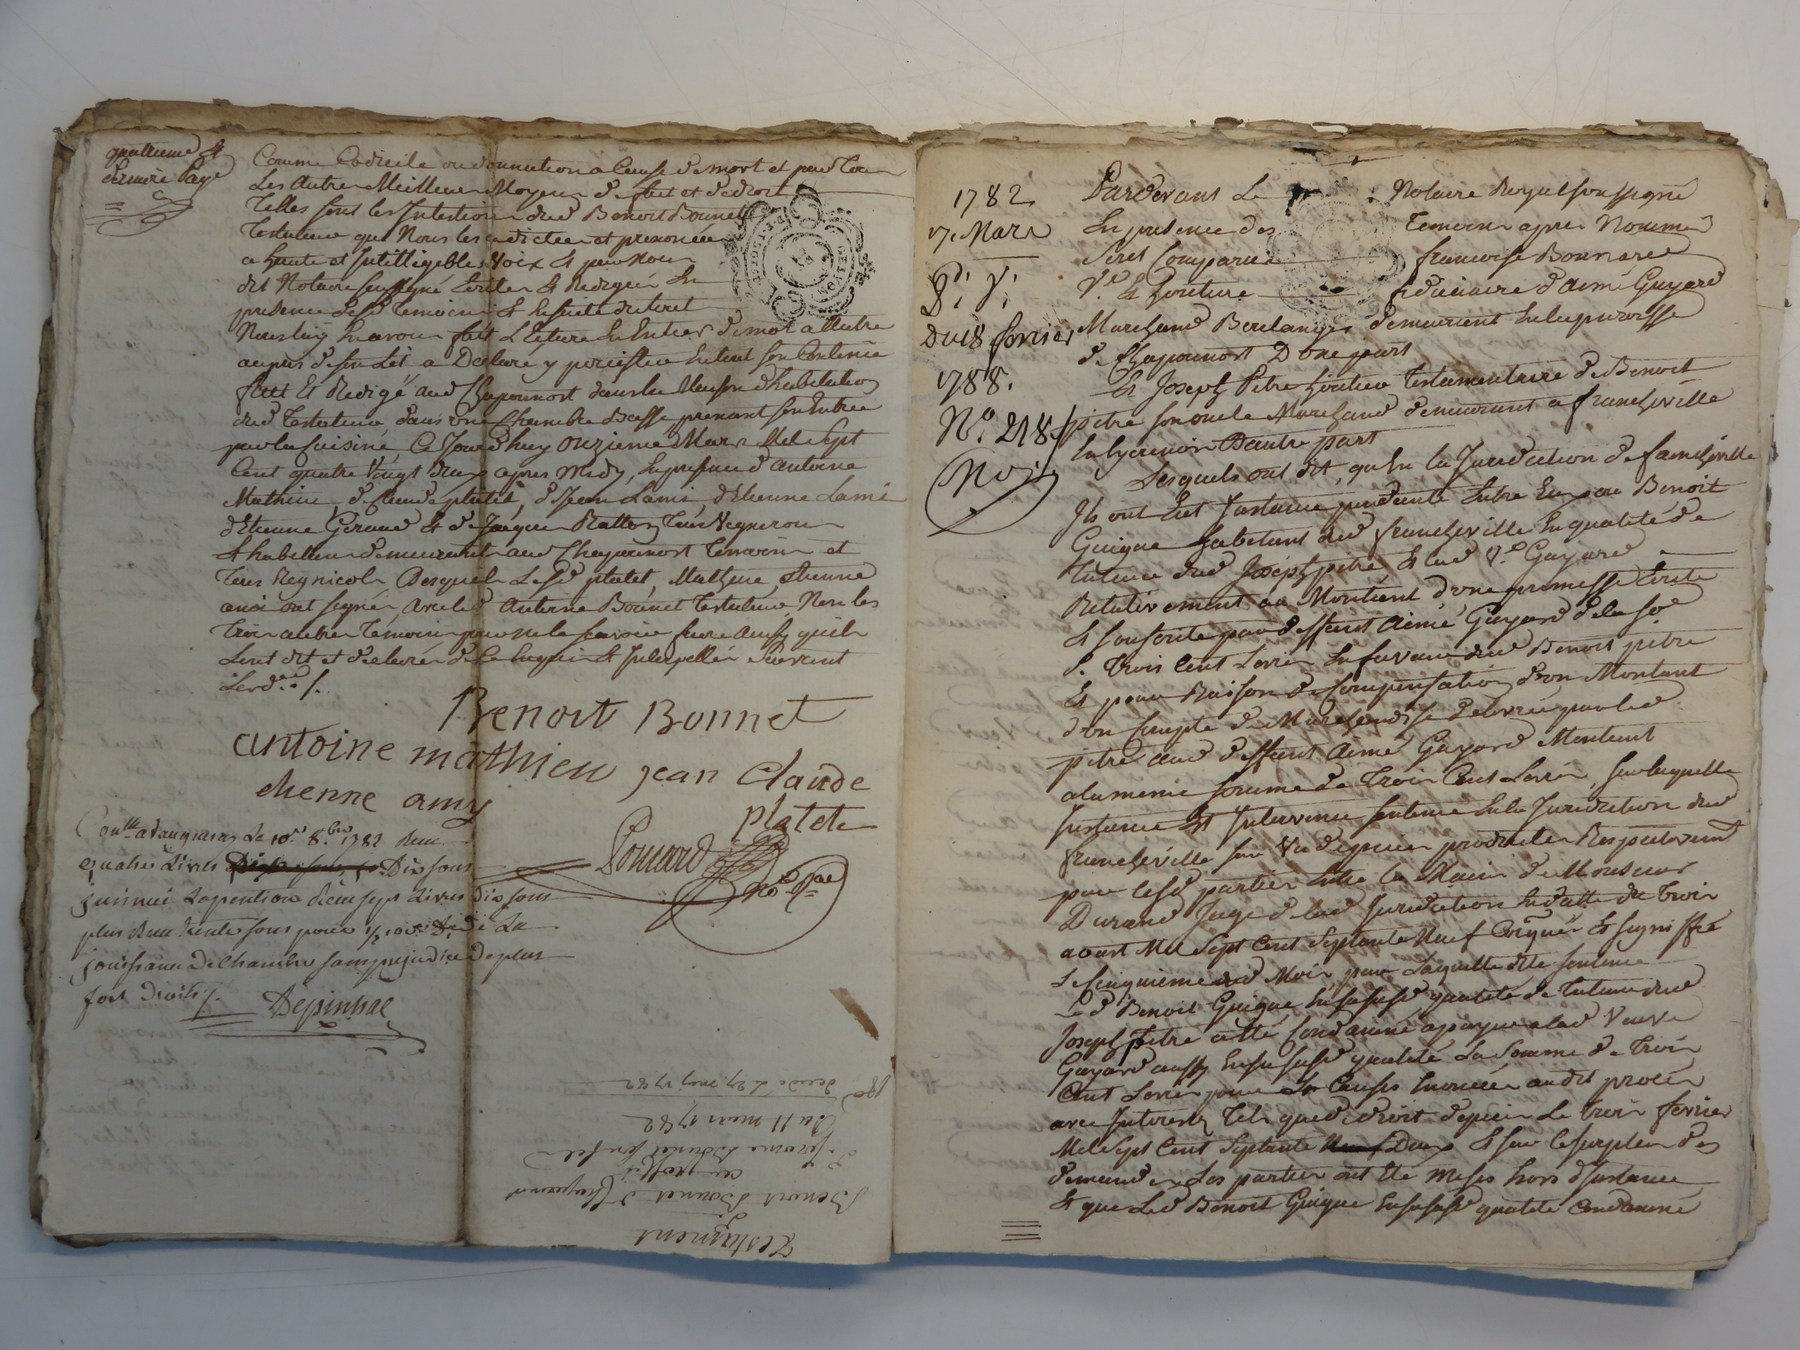 quatrieme &
derniere page
Comme Codicile ou donnation a Cause de mort et par tous
Les Autres Meilleurs Moyens de fait et de droit
Telles sont les Intentions dud Benoit Bonnet
Testateur que Nous les a dictées et prononcées
a haute et Intelligible Voix & par Nous
dit Notaire soussigné Ecrites & Redigées En
presence desd Temoins & Ensuite du tout
Nous luy En avons fait Lecture En Entier de mot a Autre
aupres de son Lit a Declaré y persister Entout son Contenu
fait Et Redigé aud Chaponnost dans la Maison d'habitation
dud Testateur dans une Chambre Basse prenant son Entrée
par la Cuisine Ce Jourd'huy Onzieme Mars Mil Sept
Cent quatre Vingt deux apres Midy, En presence d'Antoine
Mathieu, de Claude platet, de Jean Lami, d'Etienne Lami
d'Etienne Giraud & de Jacque Ratton Tous Vignerons
& habitans demeurants aud Chaponnost Temoins et
Tous Regnicols Desquels Lesd platet, Mathieu, Etienne
ami ont signé, Avec led Antoine Bonnet Testateur, Non les
Trois autres Temoins pour ne le scavoir faire Ainsy qu'ils
L'ont dit et declaré de Ce Enquis & Interpellés suivant
L'ord.ce /.
Benoit Bonnet
antoine mathieu jean claude
etienne amy platete
Ponnard
No.re R.al
Con.lle a Vaugneray Le 10.e 8.bre 1782 Reçu
quatre Livres Dix sous
jusimé Lapention à Cinq sept Livres dix sous
plus Reçu trente sous pour
jouissance de Chambre sans prejudice de plus
fort droits /.
Depinhac
Testament
Benoit Bonnet d Chaponnost
au proffit
d'Antoine Bonnet son fils
Du 11 mars 1782
1782
17. Mars
Du 18 fevrier
1788.
N.o 218
Pardevant Le Notaire Royal soussigné
En presence des Temoins apres Nommés
Sont Comparues francoise Bonnard
V.e & heritiere fiduciaire d'Aimé Guyard
Marchand Boulanger demeurant En la paroisse
de Chaponnost D'une part
Et Joseph Pitre heritier Testamentaire de Benoit
pitre son oncle Marchand demeurant a francheville
En Lyonnois D'autre part
Lesquels ont dit, qu'En la Juridiction de francheville
Ils ont Eut Instance pendante Entre Eux ou Benoit
Guigue habitant dud francheville En qualité de
tuteur dud Joseph pitre & lad V.e Guyard
Relativement au Montant d'une promesse Ecrite
& souscrite par deffunt Aimé Guyard de la so.e
d. Trois Cent Livres En faveur dud Benoit pitre
Et pour Raison de Compensation d'un Montant
d'un Compte de Marchandise delivrée par led
pitre aud deffunt Aimé Guyard Montant
a la meme somme de Trois Cent Livres, sur laquelle
Instance Est Intervenu sentence En la Juridiction dud
francheville sur Vu de pieces produites Respectivement
par lesd parties Entre les Mains de Monsieur
Durand Juge de lad Juridiction En datte du trois
aoust Mil Sept Cent Septante Neuf & signiffié
Le Cinquieme dud Mois, par Laquelle dite sentence
Led Benoit Guigue En sa susd qualité de Tuteur dud
Joseph Pitre a été Condamné a payer a lad Veuve
Guyard aussy En sa susd qualité La Somme de Trois
Cent Livres pour Les Causes Enoncées audit procès
avec Interests Tels que de droit depuis Le trois fevrier
Mil Sept Cent Septante Neuf Deux & sur le surplus des
demandes Les parties ont Eté Mises hors d'Instance
& que Led Benoit Guigue En sa susd qualité Condamné